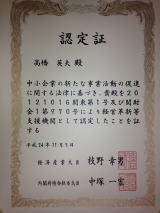 認定証
高橋 英夫 殿
中小企業の新たな事業活動の促進
に関する法律に基づき、貴殿を2
0121016関東第1号及び関財
金1第970号により経営革新等
支援機関として認定したことを証
する
平成24年11月5日
経済産業大臣 枝野幸男
内閣府特命担当大臣 中塚一宏